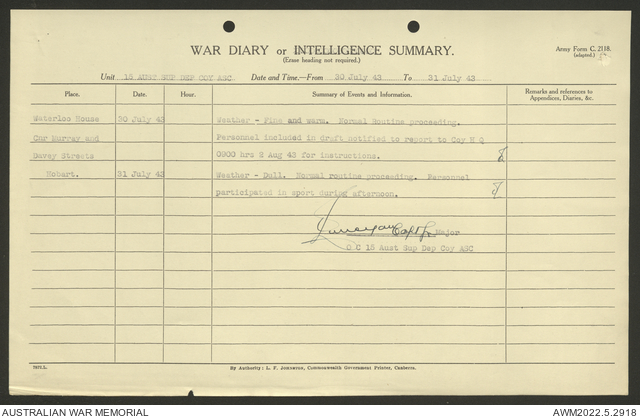 WAR DIARY or INTELLIGENCE SUMMARY.
Army Form C. 2118.
(adapted.)
(Erase heading not required.)
Unit 15 AUST SUP DEP COY ASC Date and Time.—From 30 July 43 To 31 July 43
Place. Date. Hour. Summary of Events and Information. Remarks and references to Appendices, Diaries, &c.
Waterloo House 30 July 43 Weather - Fine and warm. Normal Routine proceeding.
Cnr Murray and Personnel included in draft notified to report to Coy H Q
Davey Streets 0900 hrs 2 Aug 43 for instructions.
Hobart. 31 July 43 Weather - Dull. Normal routine proceeding. Personnel
participated in sport during afternoon.
Capt f. Major
O C 15 Aust Sup Dep Coy ASC
7871L. By Authority: L. F. Johnston, Commonwealth Government Printer, Canberra.
AUSTRALIAN WAR MEMORIAL AWM2022.5.2918